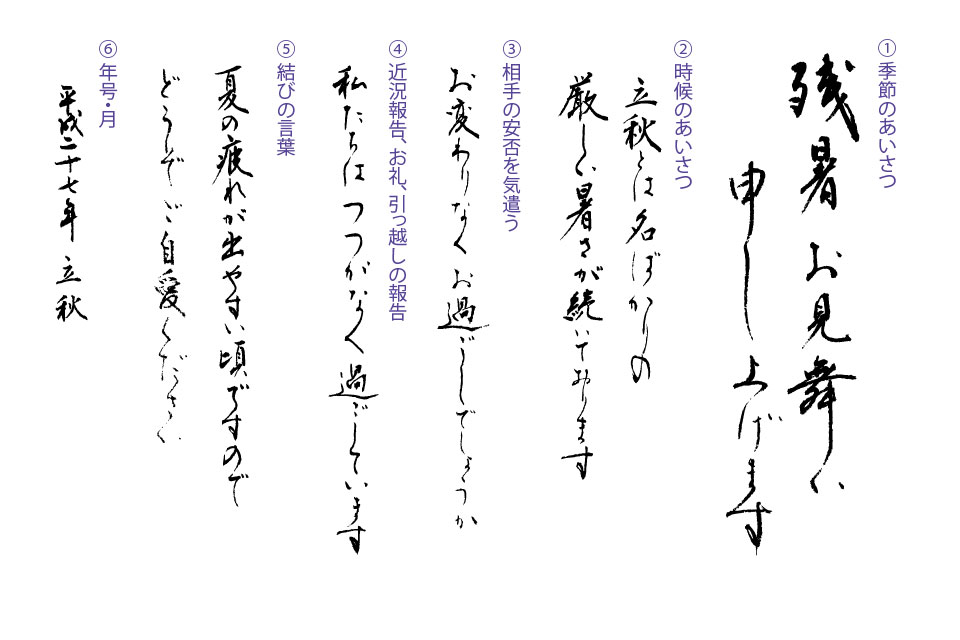 ①季節のあいさつ
残暑お見舞い
申し上げます
②時候のあいさつ
立秋とは名ばかりの
厳しい暑さが続いております
③相手の安否を気遣う
お変わりなくお過ごしでしょうか
④近況報告、お礼、引っ越しの報告
私たちはつつがなく過ごしています
⑤結びの言葉
夏の疲れが出やすい頃ですので
どうぞご自愛ください
⑥年号・月
平成二十七年 立秋